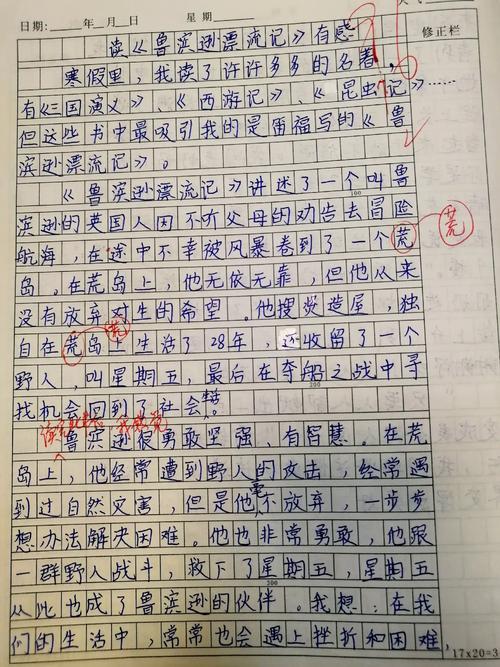 日期: 年 月 日 星期 修正栏
读《鲁滨逊漂流记》有感
寒假里,我读了许许多多的名著,
有《三国演义》、《西游记》、《昆虫记》……
但这些书中最吸引我的是雷福写的《鲁
滨逊漂流记》。
《鲁滨逊漂流记》讲述了一个叫鲁
100
滨逊的英国人因不听父母的劝告去冒险
航海,在途中不幸被风暴卷到了一个荒
荒
岛。在荒岛上,他无依无靠,但他从来
没有放弃对生的希望。他搜炎造屋,独
荒
自在荒岛上生活了28年,还收留了一个
野人,叫星期五,最后在夺船之战中寻
200
找机会回到了社会
鲁滨逊很勇敢坚强、有智慧。在荒
岛上,他经常遭到野人的攻击,经常遇
到过自然灾害,但是他毫不放弃,一步步
想办法解决困难。他也非常勇敢,他跟
一群野人战斗,救下了星期五,星期五
300
从此也成了鲁滨逊的伙伴。我想:在我
们的生活中,常常也会遇上挫折和困难,
17×20=3